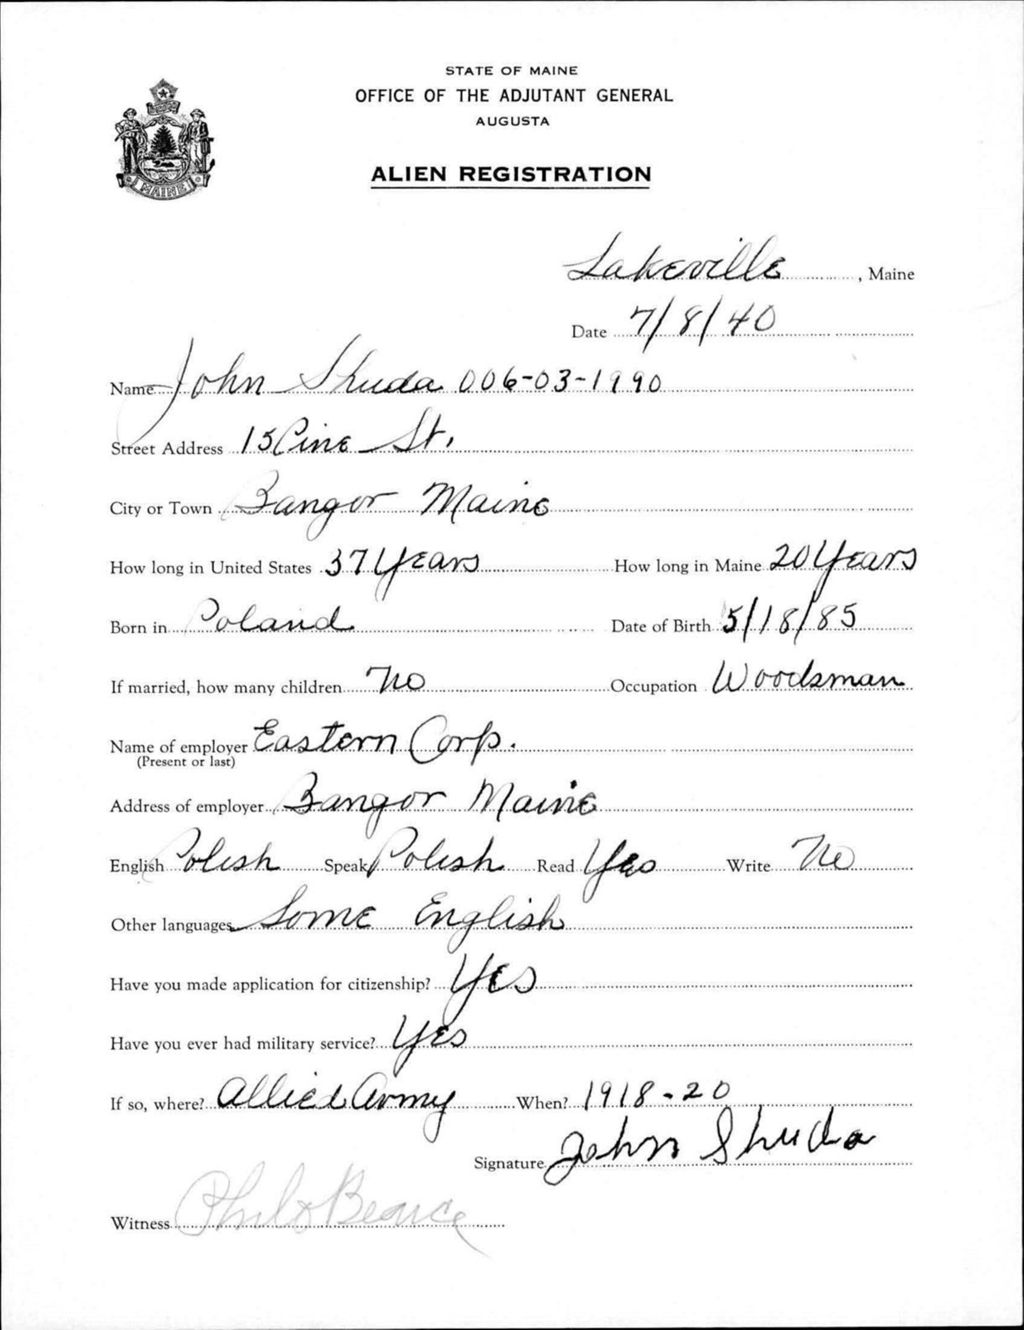 STATE OF MAINE
OFFICE OF THE ADJUTANT GENERAL
AUGUSTA
ALIEN REGISTRATION
MAINE
Lakeville, Maine
Date 7/8/40
Name John Shuda 006-03-1990
Street Address 15 Pine St.
City or Town Bangor Maine
How long in United States 37 Years How long in Maine 20 Years
Born in Poland Date of Birth 5/18/85
If married, how many children No Occupation Woodsman
Name of employer Eastern Corp.
(Present or last)
Address of employer Bangor Maine
English Polish Speak Polish Read Yes Write No
Other languages Some English
Have you made application for citizenship? Yes
Have you ever had military service? Yes
If so, where? Allied Army When? 1918-20
Signature John Shuda
Witness Philo Bearce